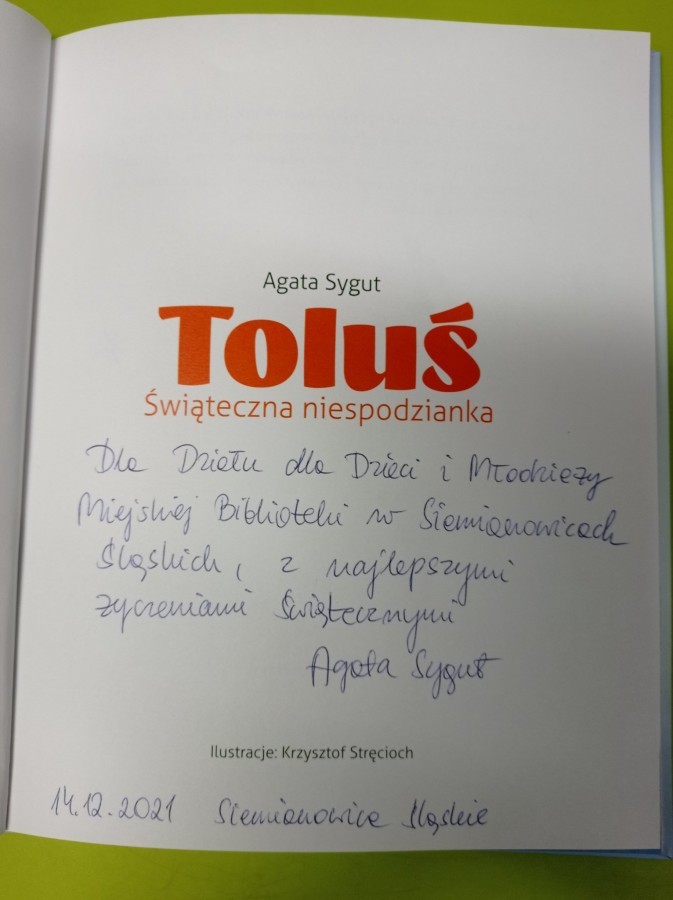 Agata Sygut
Toluś
Świąteczna niespodzianka
Dla Działu dla Dzieci i Młodzieży
Miejskiej Biblioteki w Siemianowicach
Śląskich, z najlepszymi
życzeniami świątecznymi
Agata Sygut
Ilustracje: Krzysztof Stręcioch
14.12.2021 Siemianowice Śląskie